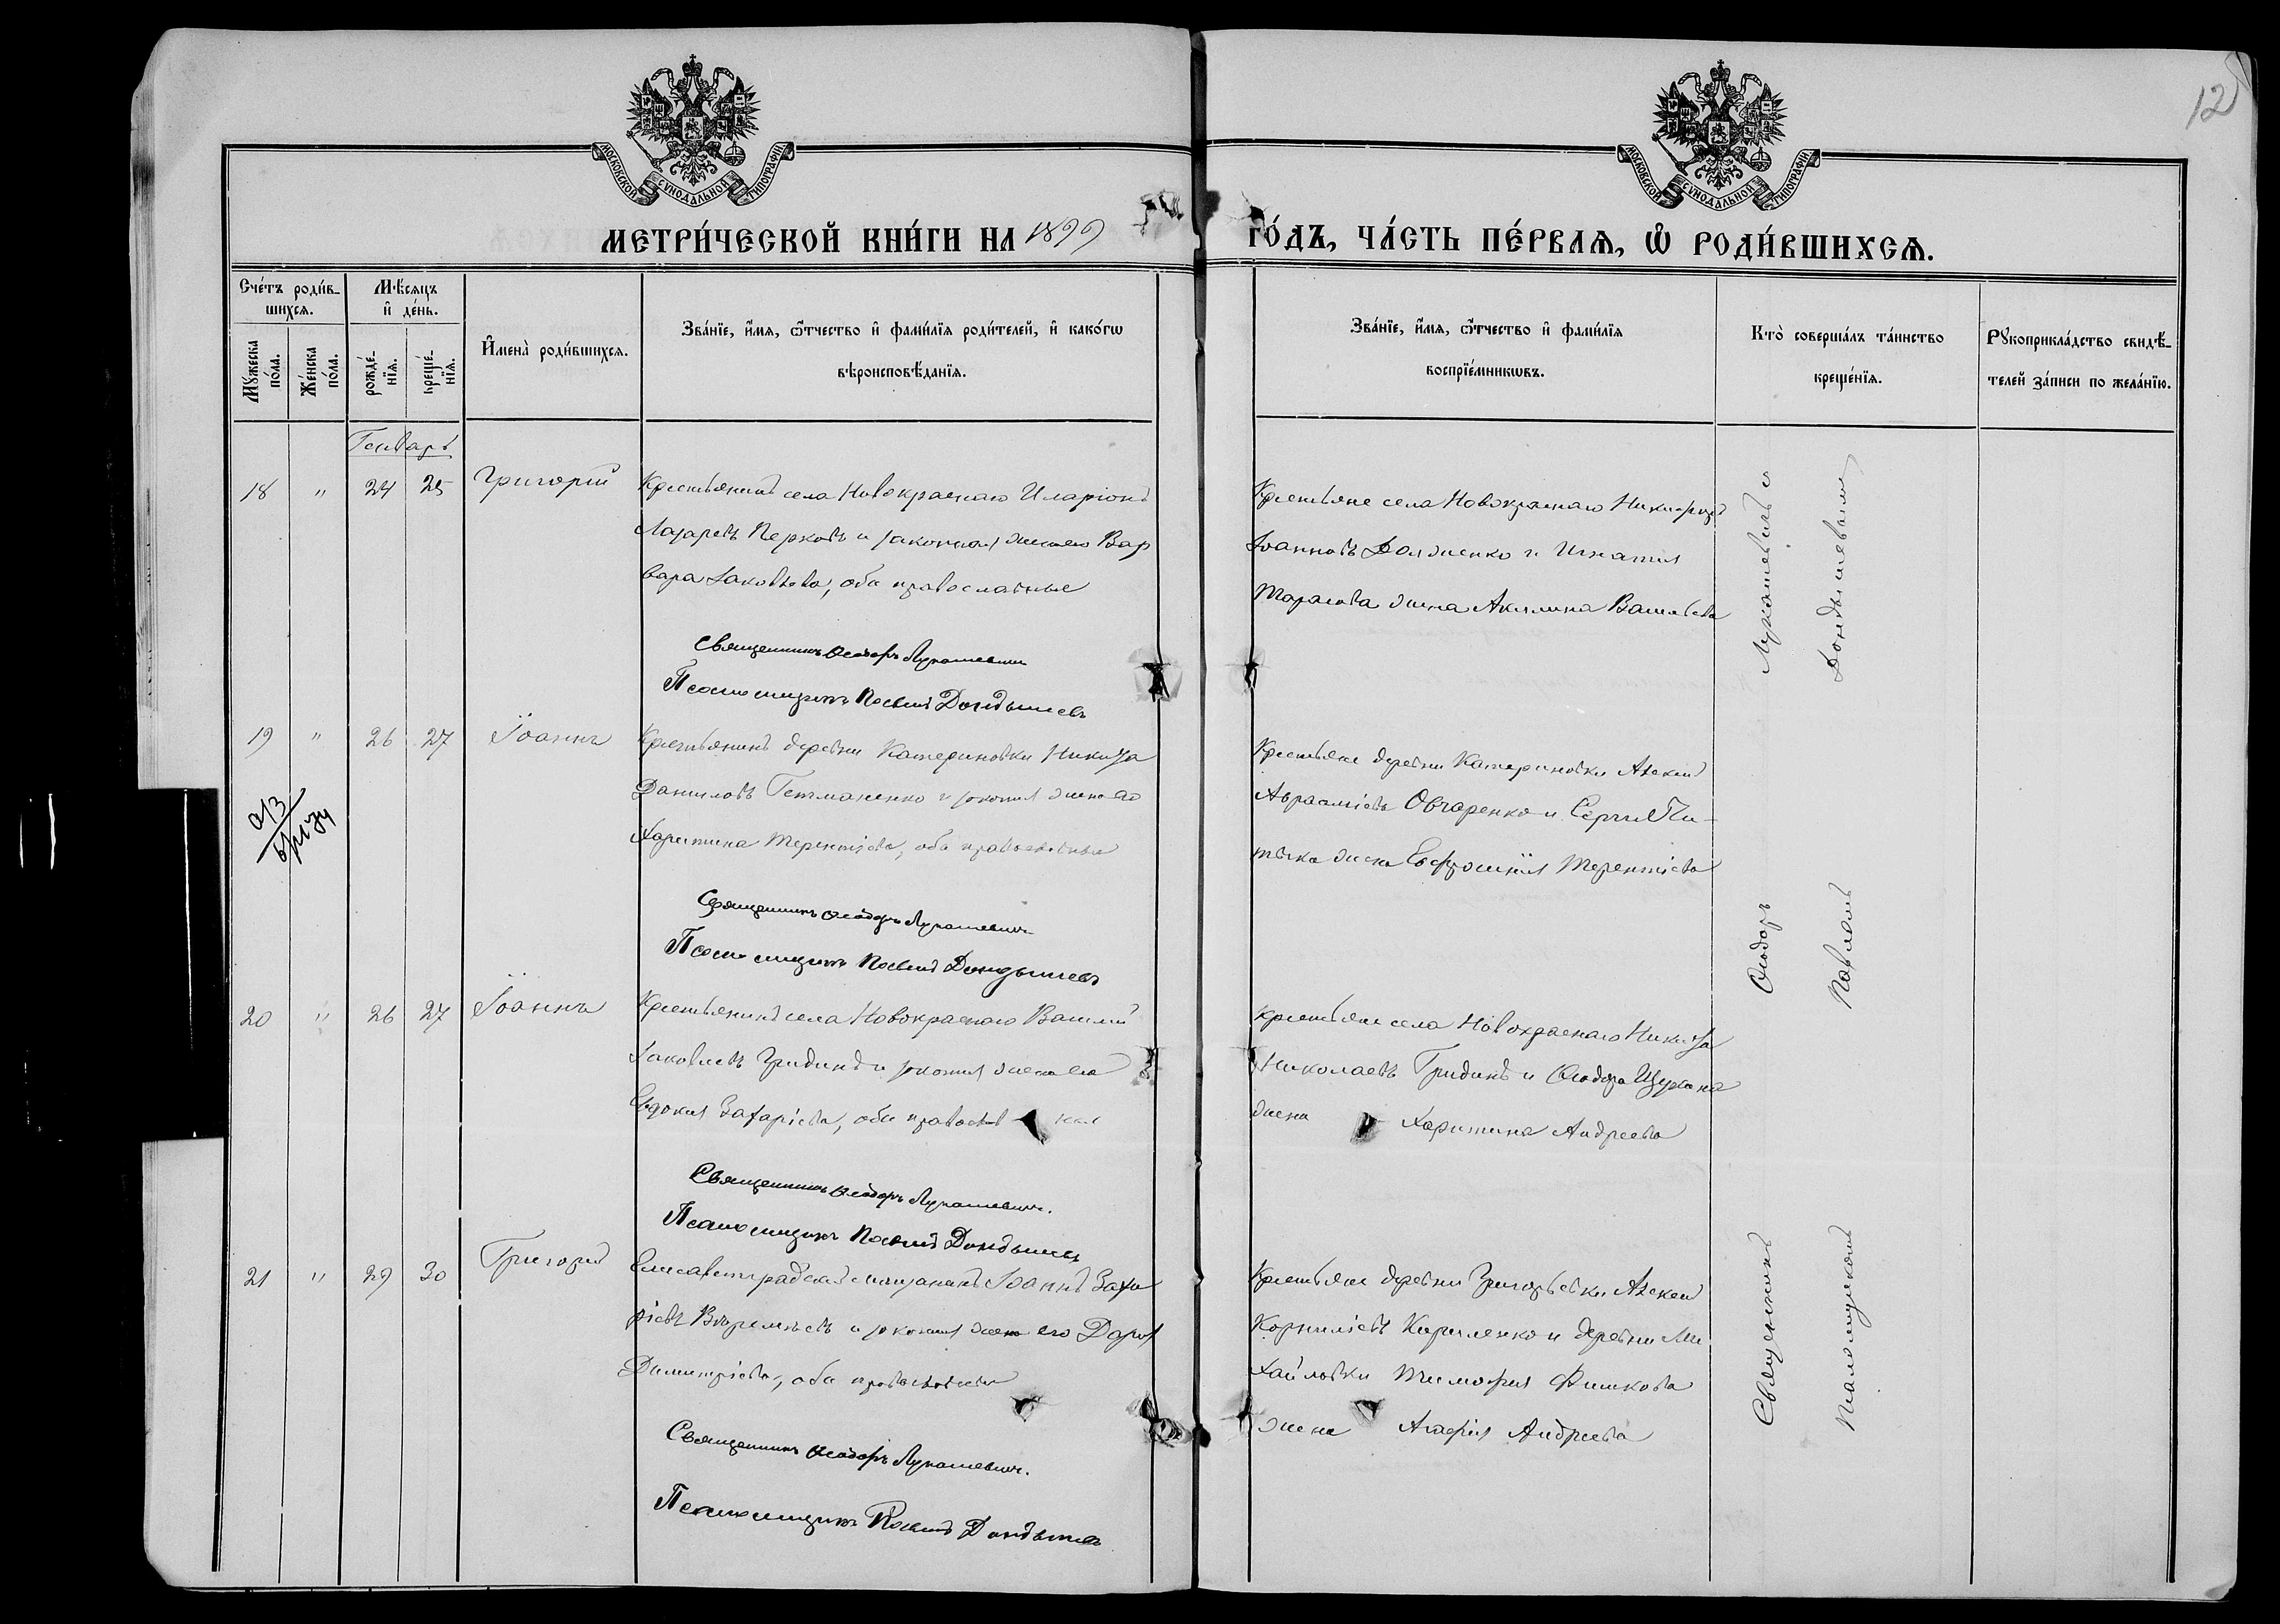 12
МОСКОВСКОЙ СѴНОДАЛЬНОЙ ТИПОГРАФІИ
МОСКОВСКОЙ СѴНОДАЛЬНОЙ ТИПОГРАФІИ
МЕТРИ́ЧЕСКОЙ КНИ́ГИ НА 1899
ГО́ДЪ, ЧА́СТЬ ПЕ́РВАѦ, Ѽ РОДИ́ВШИХСѦ.
Сче́тъ роди́в-
шихсѧ.
Мѣ́сѧцъ
и҆ де́нь.
Мꙋ́жеска
по́ла.
Же́нска
по́ла.
рожде́-
нїѧ.
креще́-
нїѧ.
И҆мена̀ роди́вшихсѧ.
Зва́нїе, и҆́мѧ, ѻ҆́тчество и҆ фами́лїѧ роди́телей, и҆ како́гѡ
вѣроисповѣ́данїѧ.
Зва́нїе, и҆́мѧ, ѻ҆́тчество и҆ фами́лїѧ
воспрїе́мникѡвъ.
Кто̀ соверша́лъ та́инство
креще́нїѧ.
Рꙋкоприкла́дство свидѣ́-
телей за́писи по жела́нїю.
Генварь
18 " 24 25 Григорій
Крестьянинъ села Новокраснаго Иларіонъ
Лазаревъ Перковъ и законная жена его Вар
вара Іаковлева, оба православные
Священникъ Ѳеодоръ Лукашевичъ
Псаломщикъ Павелъ Дондышевъ
Крестьяне села Новокраснаго Никифоръ
Іоанновъ Долженко и Игнатія
Тарасова жена Акилина Васильева
19 " 26 27 Іоаннъ
Крестьянинъ деревни Катериновки Никита
Даниловъ Гетманенко и законная жена его
Харитина Терентіева, оба православные
Священникъ Ѳеодоръ Лукашевичъ
Псаломщикъ Павелъ Дондышевъ
Крестьяне деревни Катериновки Алексій
Аврааміевъ Овчаренко и Сергія
жена Евфросинія Терентіева
20 " 26 27 Іоаннъ
Крестьянинъ села Новокраснаго Василій
Іаковлевъ Гридинъ и законная жена его
Евдокія Захаріева, оба православные
Священникъ Ѳеодоръ Лукашевичъ.
Псаломщикъ Павелъ Дондышевъ
крестьяне села Новокраснаго Никита
Николаевъ Гридинъ и Ѳеодора Щукина
жена Харитина Андреева
21 " 29 30 Григорій
Елисаветградскій мещанинъ Іоаннъ Заха
ріевъ и законная жена его Дарія
Димитріева, оба православные
Священникъ Ѳеодоръ Лукашевичъ.
Псаломщикъ Павелъ Дондышевъ
Крестьяне деревни Григорьевки Алексій
Корниліевъ Кириленко и деревни Ми
хайловки Тимофея Фишкова
жена Агафія Андреева
Священникъ Ѳеодоръ Лукашевичъ и
Псаломщикомъ Павломъ Дондышевымъ